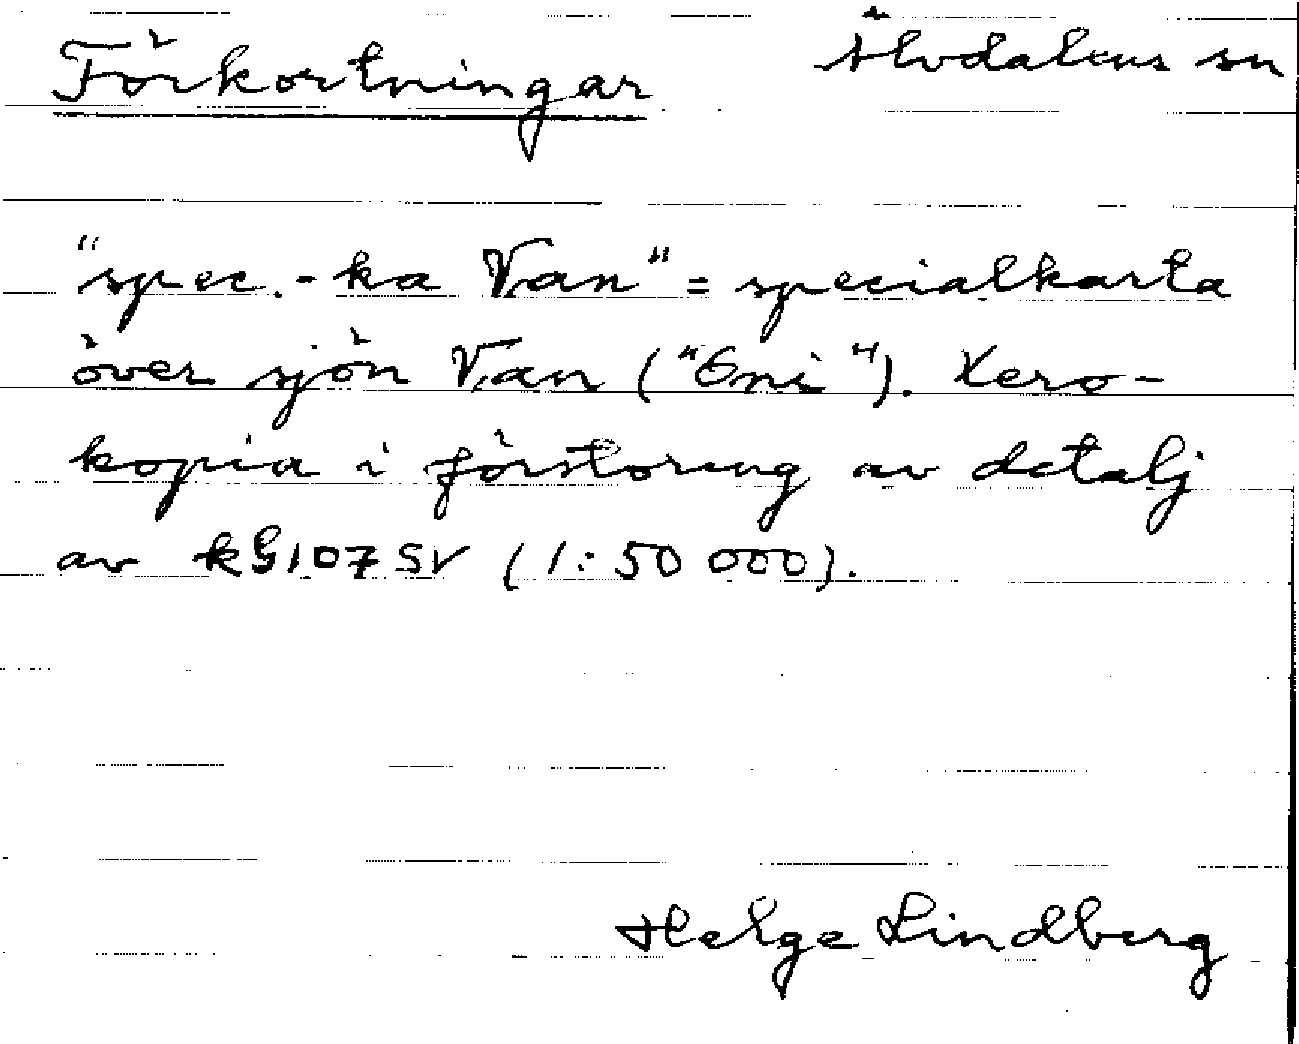 Förkortningar Älvdalens sn
"spec.-ka Van" = specialkarta
över sjön Van ("Oni"). Xero-
kopia i förstoring av detalj
av kG107SV (1:50 000).
Helge Lindberg